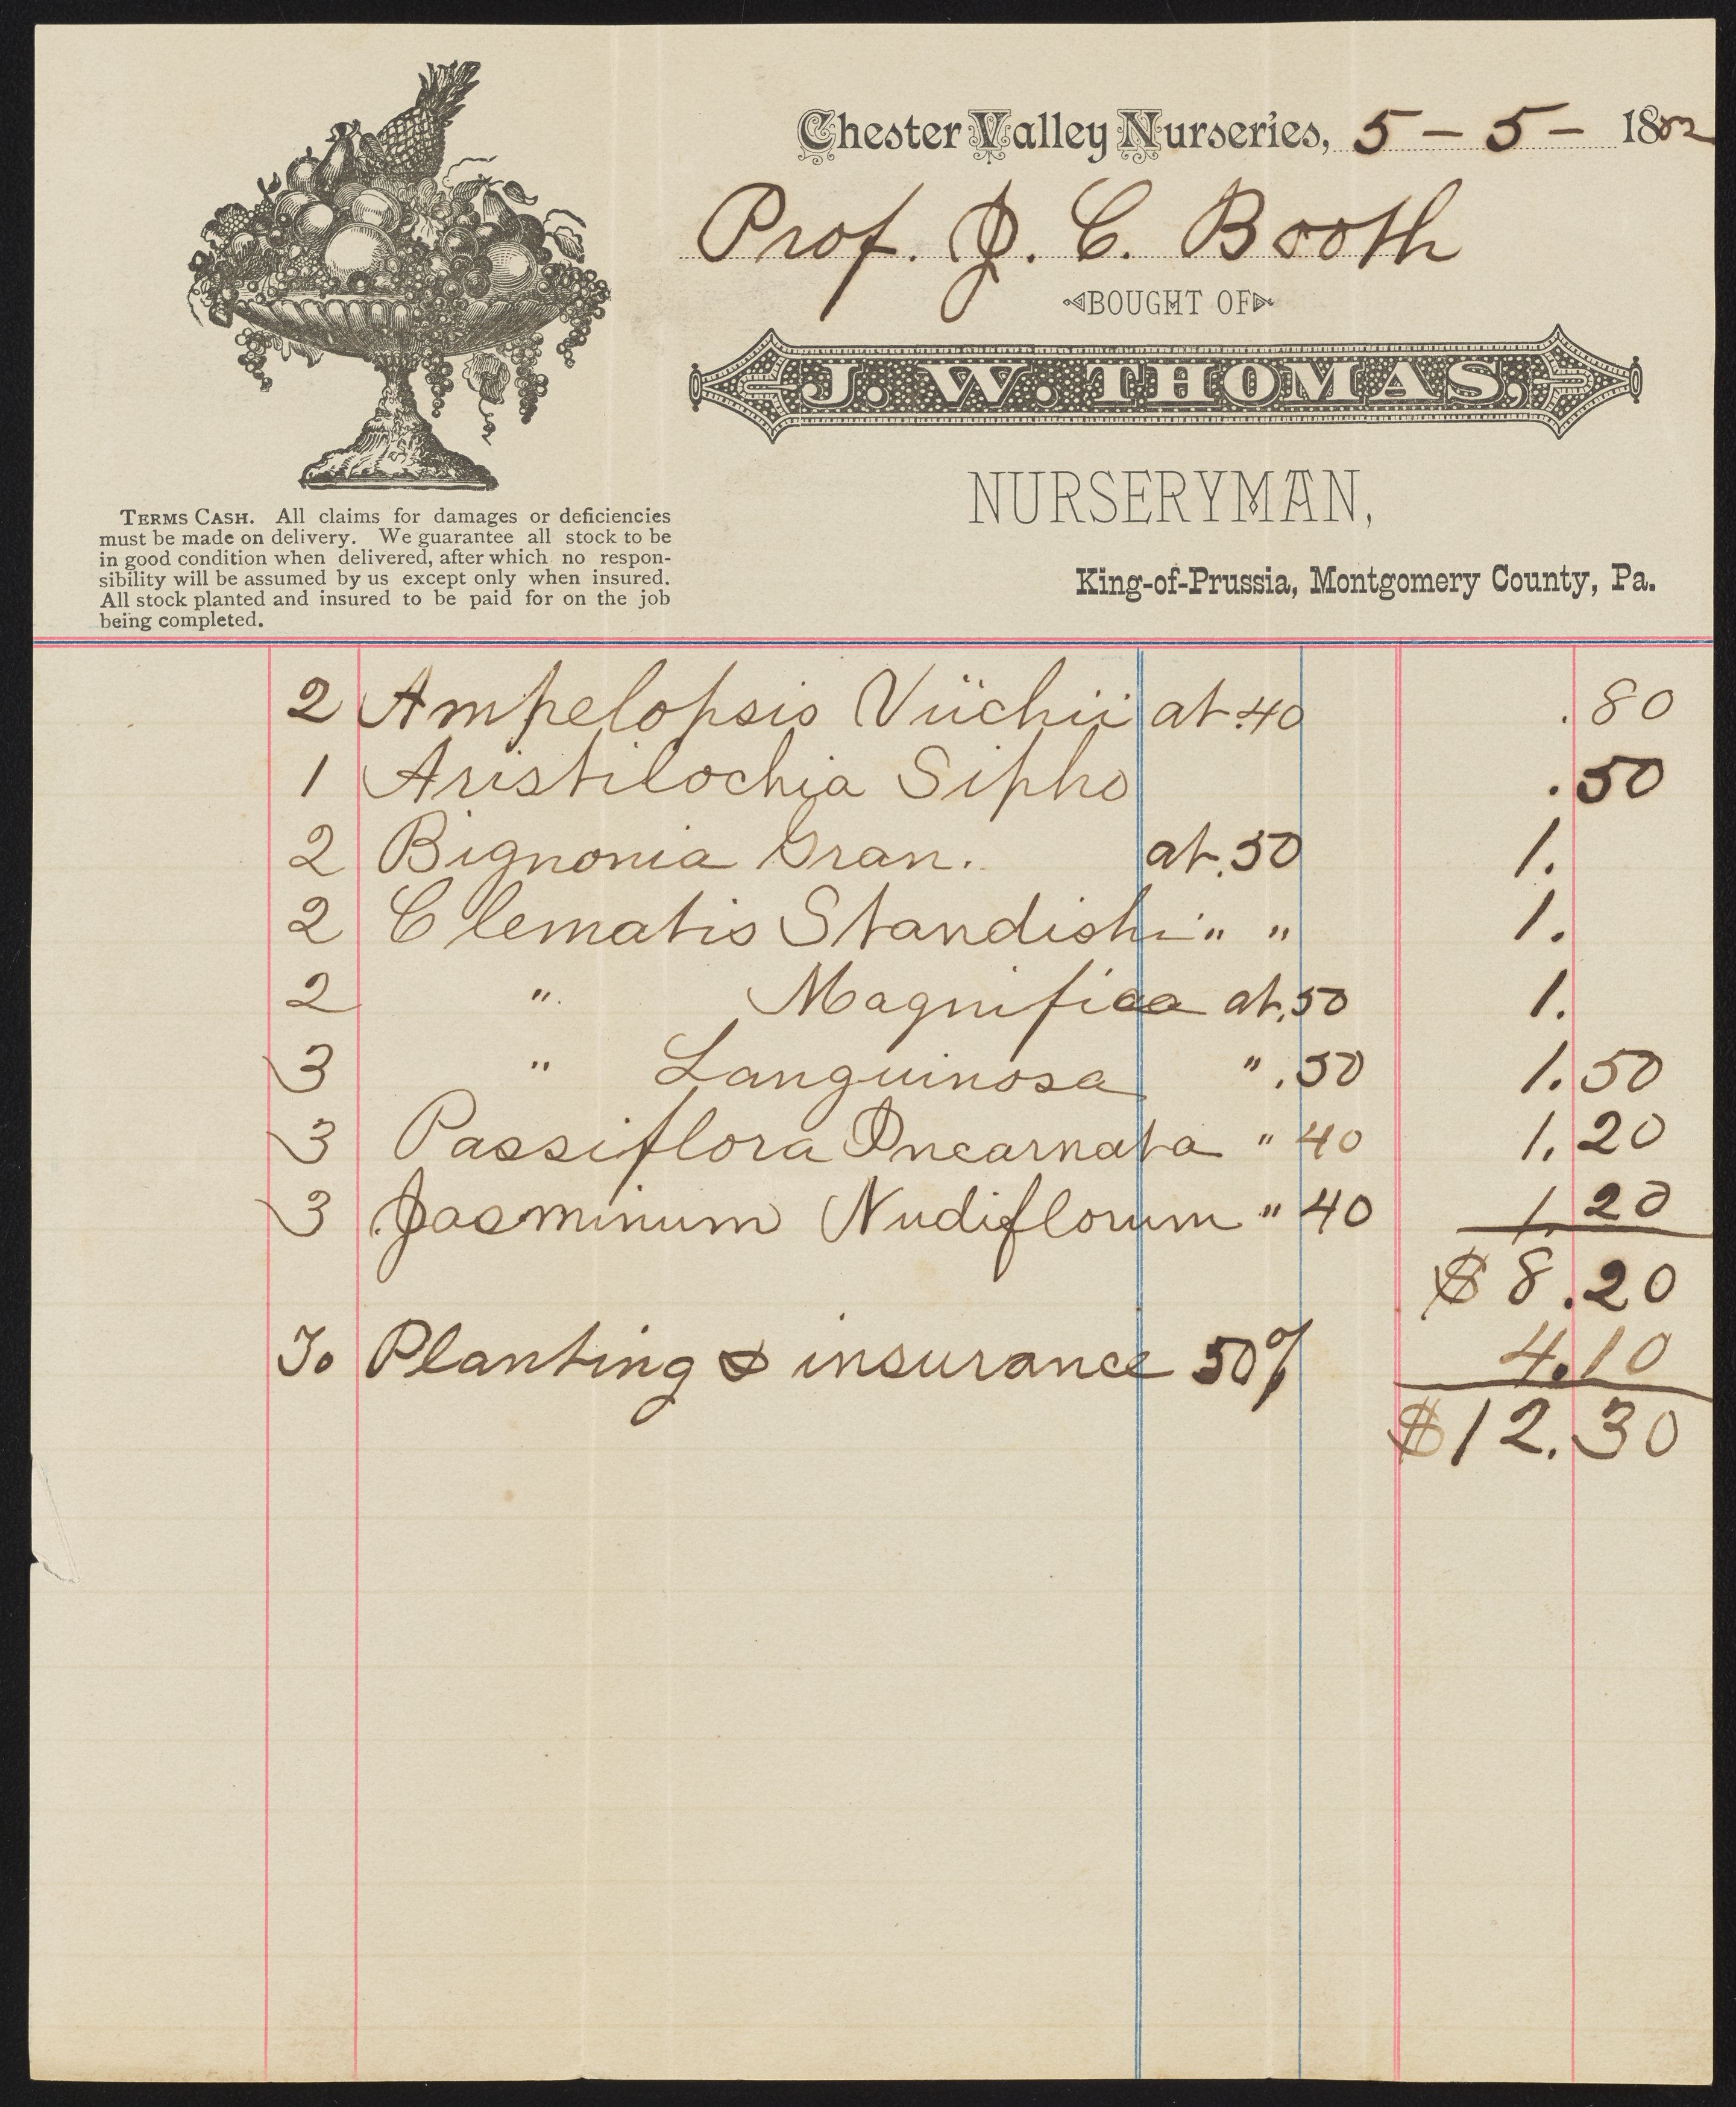 Chester Valley Nurseries, 5 - 5 - 1882
Prof. J. C. Booth
BOUGHT OF
J. W. THOMAS,
NURSERYMAN,
King-of-Prussia, Montgomery County, Pa.
TERMS CASH. All claims for damages or deficiencies
must be made on delivery. We guarantee all stock to be
in good condition when delivered, after which no respon-
sibility will be assumed by us except only when insured.
All stock planted and insured to be paid for on the job
being completed.
2 Ampelopsis Viichii at .40 .80
1 Aristilochia Sipho .50
2 Bignonia Gran. at .50 1.
2 Clematis Standishi " " 1.
2 " Magnifica at .50 1.
3 " Languinosa " .50 1.50
3 Passiflora Incarnata " 40 1.20
3 Jasminum Nudiflorum " 40 1.20
$8.20
To Planting & insurance 50% 4.10
$12.30